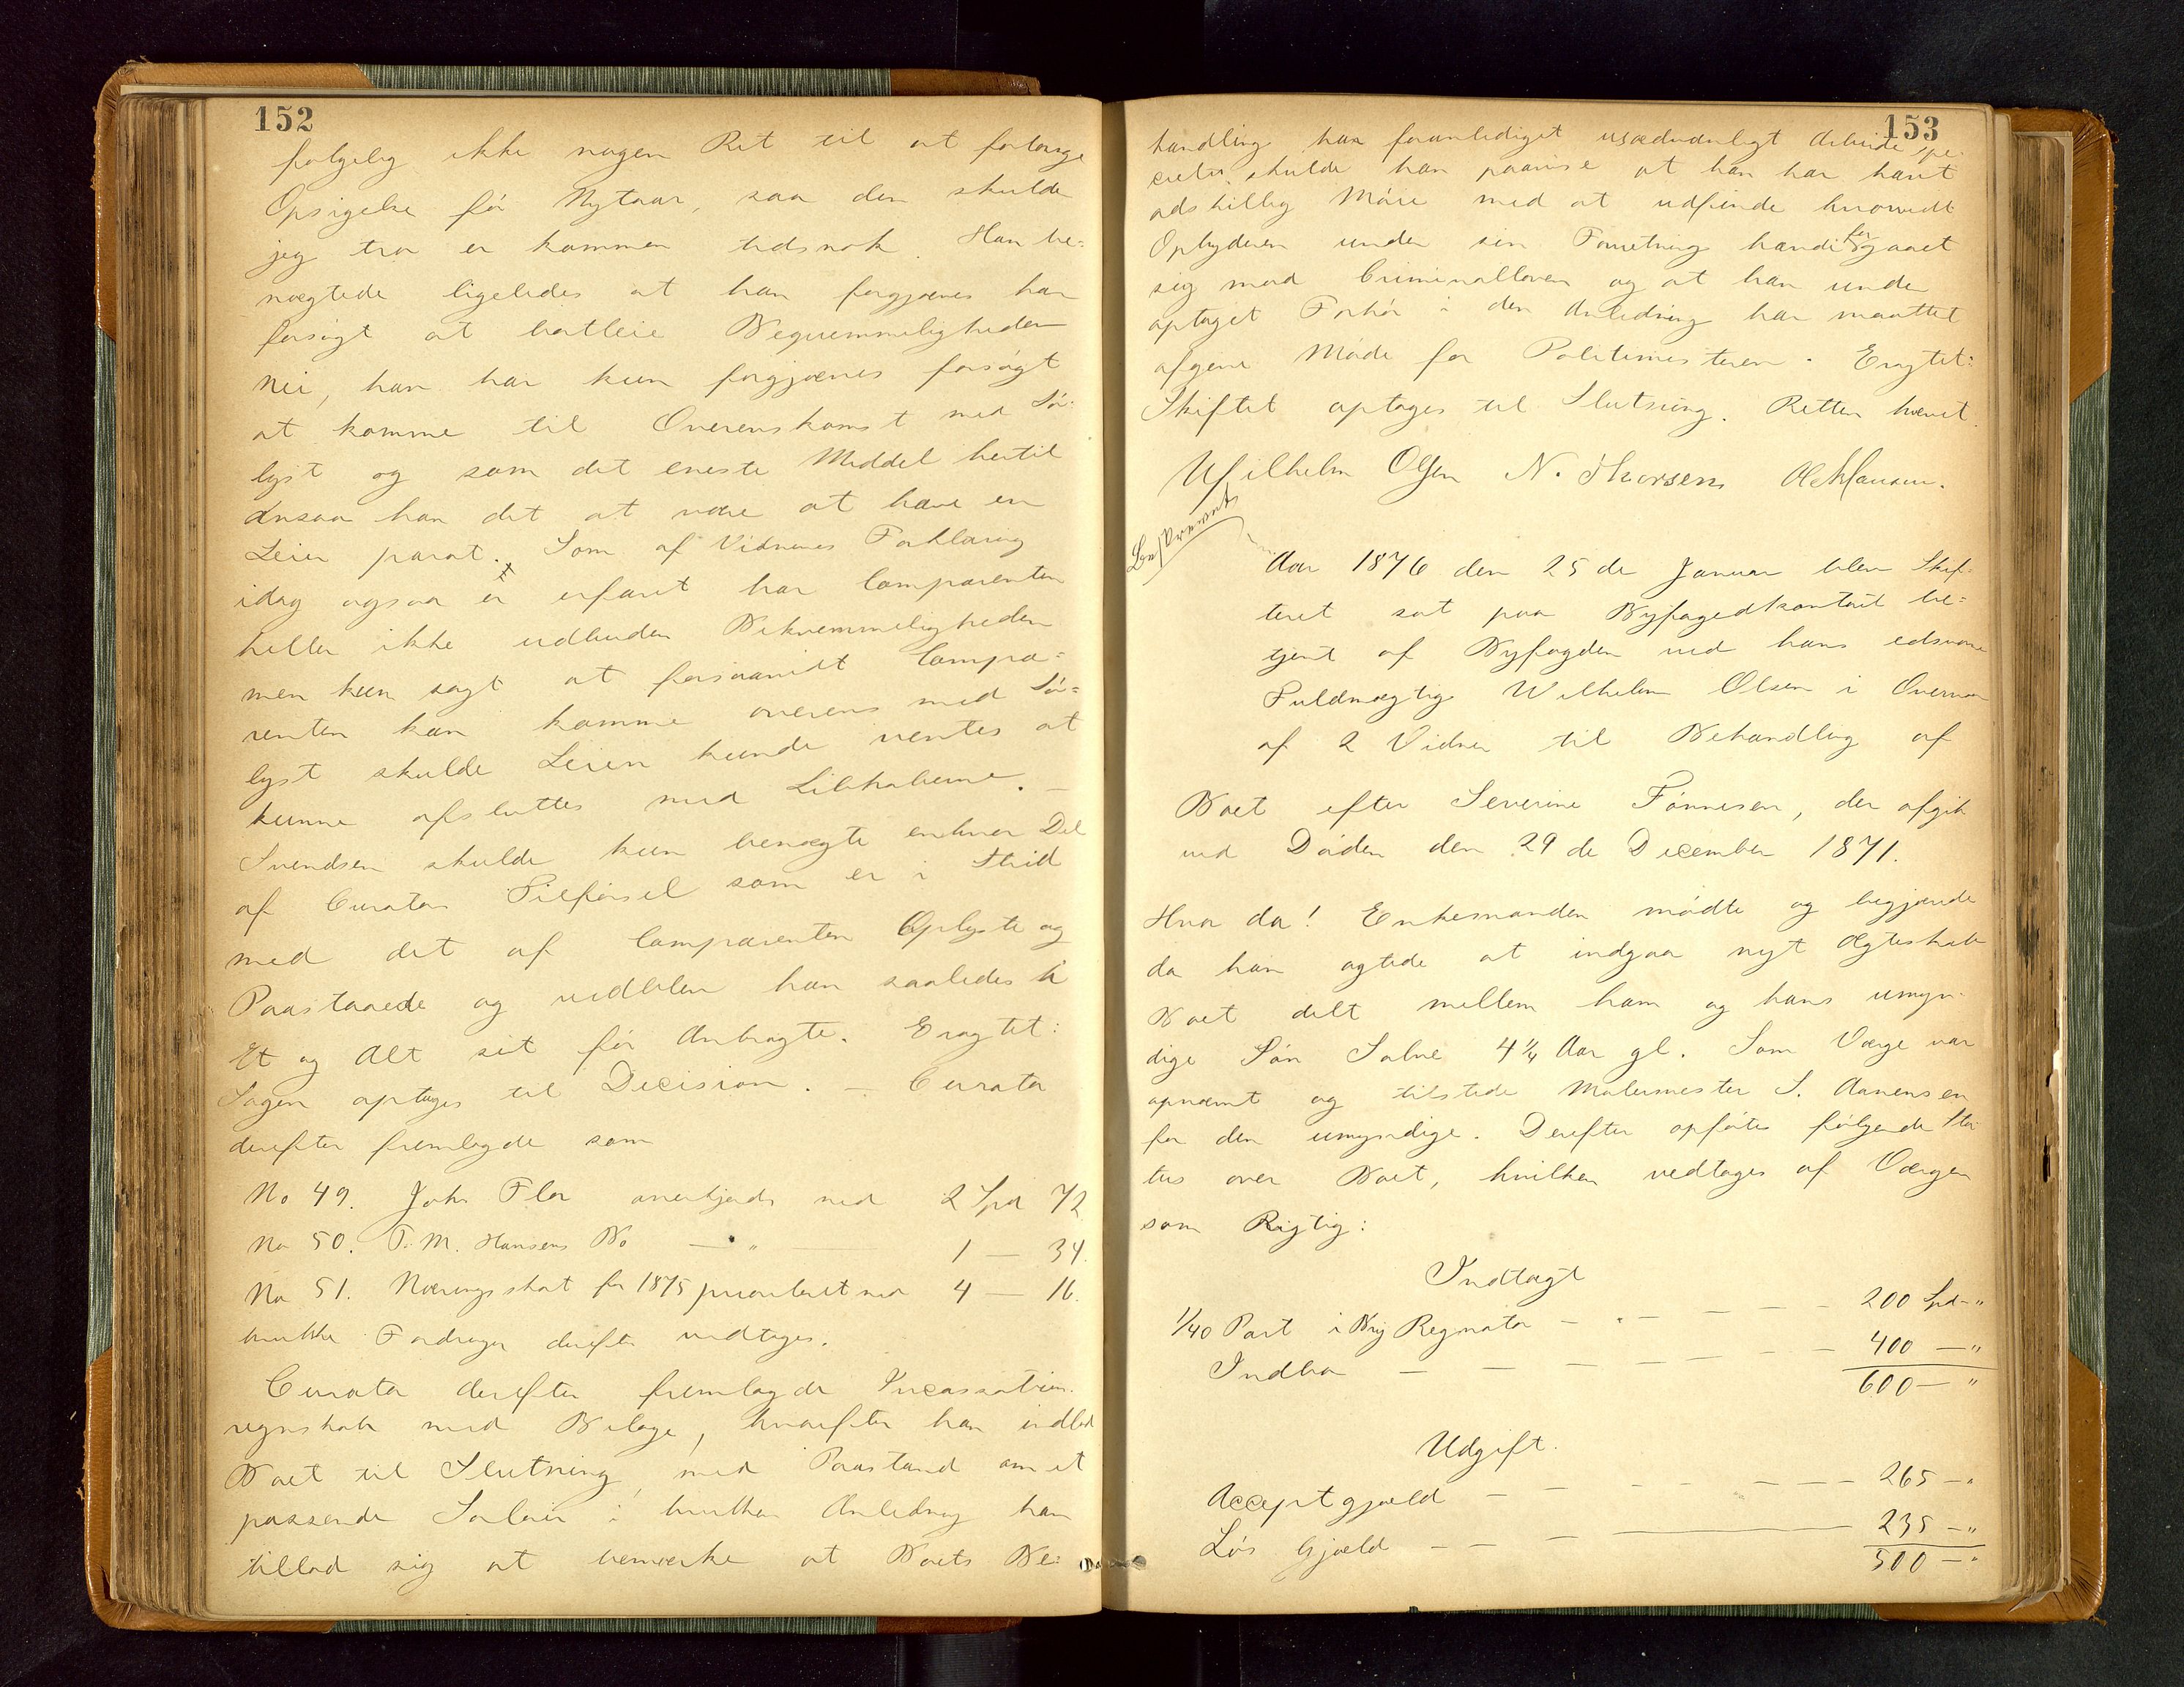 152
følgelig ikke nogen Ret til at forlange
Opsigelse før Nytaar, saa den skulde
jeg tro er kommen tidsnok. Han be=
nægtede ligeledes at han forgjæves har
forsøgt at bortleie Bequemmeligheden
Nei, han har kun forgjæves forsøgt
at komme til Overenskomst med Sør-
lyst og som det eneste Middel hertil
Ansaa han det at være at have en
Leier parat. Som af Vidnernes Forklaring
idag ogsaa er erfaret har Comparenten
heller ikke udbuden Bekvemmeligheden
men kun sagt at forsaavidt Compa=
renten kan komme overens med Sør=
lyst skulde Leien kunde ventes at
kunne afsluttes med Liebhaberne. —
Svendsen skulde kun benægte enhver Del
af Curators Tilførsel som er i Strid
med det af Comparenten Oplyste og
Paastaaede og vedblev han saaledes i
Et og Alt sit før Anbragte. Eragtet:
Sagen optages til Decision. — Curator
derefter fremlagde som
No 49. Johs Flor anerkjends med 2 Spd 72
No 50. T. M. Hansens Bo — " — 1 — 34.
No 51. Næringsskat for 1875 prioriteret med 4 — 16.
hvilke Fordringer derefter vedtoges.
Curator derefter fremlagde Incassations-
regnskab med Bilage, hvorefter han indlod
Boet til Slutning, med Paastand om et
passende Salair i hvilken Anledning han
tillod sig at bemærke at Boets Be=
153
handling har foranlediget usædvanligt Arbeide, spe-
cielt skulde han paavise at han har havt
adskillig Møie med at udfinde hvorvidt
Opbyderen under sin Forretning havde forgaaet
sig mod Criminalloven og at han under
optaget Forhør i den Anledning har maattet
afgive Møde for Politimesteren. Eragtet:
Skiftet optages til Slutning. Retten hævet.
Wilhelm Olsen N. Thorsen
Beskrevet
Aar 1876 den 25 de Januar blev Skif=
teret sat paa Byfogedkontoret be=
tjent af Byfogden ved hans edsvorne
Fuldmægtig Wilhelm Olsen i Overvær
af 2 Vidner til Behandling af
Boet efter Severine Tønnesen, der afgik
ved Døden den 29 de December 1871.
Hvor da! Enkemanden mødte og begjærede
da han agtede at indgaa nyt Ægteskab
Boet delt mellem ham og hans umyn-
dige Søn Salve 4¼ Aar gl. Som Værge var
opnævnt og tilstede Malermester S. Aanensen
for den umyndige. Derefter opførtes følgende Sta
tus over Boet, hvilken vedtoges af Værgen
som Rigtig:
Indtægt
1/40 Part i Brig Regnator — — — — — 200 Spd - "
Indbo — — — — — — 400 — "
600 — "
Udgift.
Acceptgjæld — — — — — — 265 — "
Løs Gjæld — — — — 235 — "
500 — "